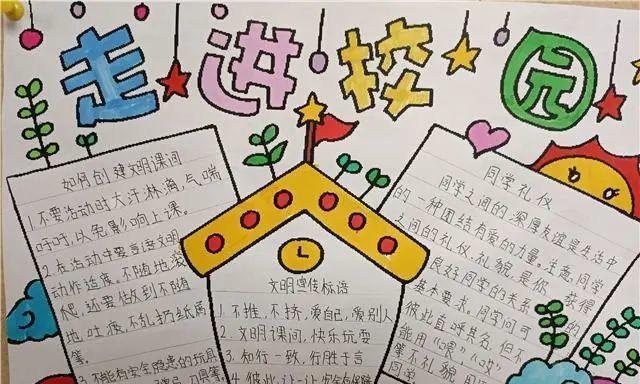 走进校园
如何创建文明课间
1.不要活动时大汗淋漓,气喘
吁吁,以免影响上课。
2.在活动中要言语文明
动作适度。不随地滚
爬,还要做到不随
地吐痰,不乱扔纸屑
等。
3.不能有安全隐患的玩具
文明宣传标语
1.不推,不挤,爱自己,爱别人
2.文明课间,快乐玩耍
3.知行一致,行胜于言
4.彼此让一让
同学礼仪
同学之间的深厚友谊是生活中
的一种团结有爱的力量。注意同学
之间的礼仪礼貌,是你获得
良好同学的关系的
基本要求。同学间可
彼此直呼其名,但不
能用“喂”,“
等不礼貌用
同学